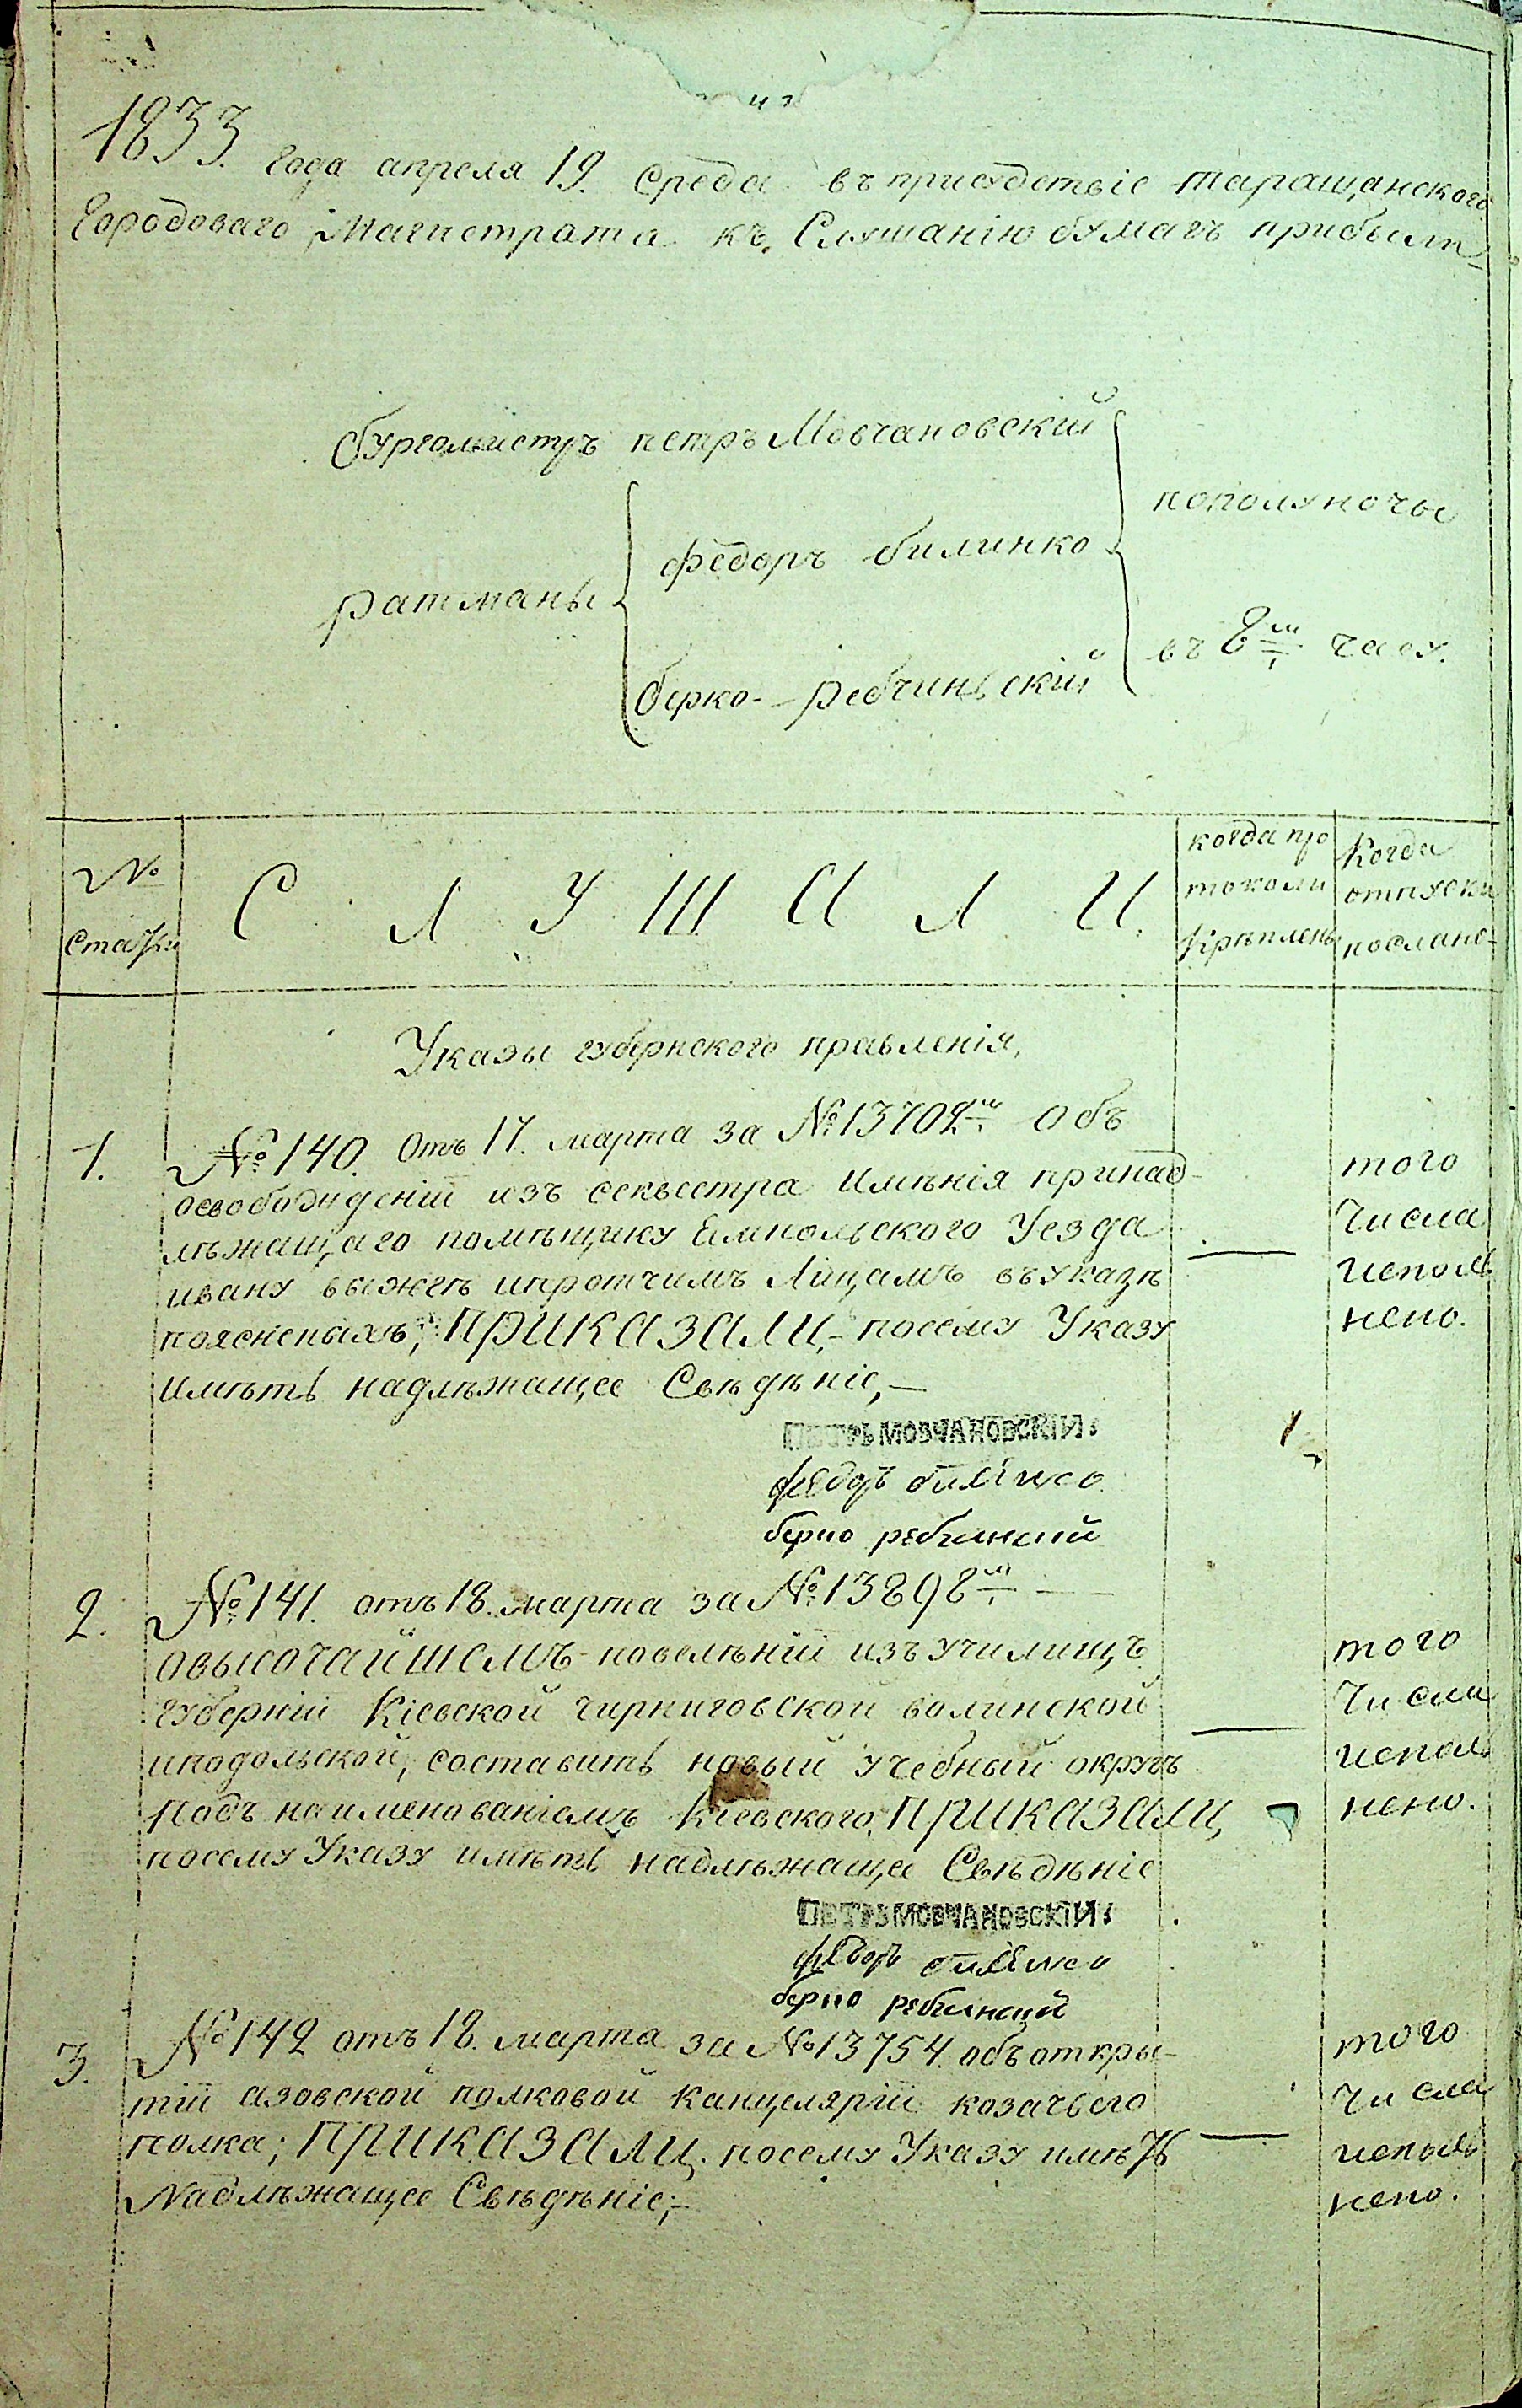 1833. года апреля 19. Среда въ присудствіе таращанского
Городоваго Магистрата къ Слушанію бумагъ прибыли
бургомистръ петръ Мовчановскій
пополуночы
ратманы
федоръ билинко
въ 8м часу.
берко ребчинскій
№ статьи
С Л У Ш А Л И
когда протоколи крѣплены
Когда отпуски посланы
Указы губернского правленія,
1. № 140. Отъ 17. марта за № 13702м. Объ
освобожденіи изъ секвестра имѣнія принад-
лѣжащаго помѣщику Ямпольского Уезда
ивану выжгѣ ипротчимъ Лицамъ въуказѣ
поясненыхъ; ПРИКАЗАЛИ, посему Указу
имѣть надлѣжащее Свѣдѣніе,
того
Числа
исполь
нено.
ПЕТРЪ МОВЧАНОВСКІЙ
федоръ билинко
берко ребчинский
2. № 141. отъ 18. марта за № 13898м.
овысочайшемъ повелѣніи изъ училищъ
губерній Кіевской чирниговской волинской
иподольской, составить новый учебный округъ
подъ наименованіемъ Кіевского, ПРИКАЗАЛИ,
посему Указу имѣть надлѣжащее Свѣдѣніе
того
Числа
исполь
нено.
ПЕТРЪ МОВЧАНОВСКІЙ
федоръ билинко
берко ребчинский
3. № 142 отъ 18. марта за № 13754. объоткры-
тіи азовской полковой канцеляріи козачьего
полка; ПРИКАЗАЛИ. посему Указу имѣть
Надлѣжащее Свѣдѣніе;
того
числа
исполь
нено.